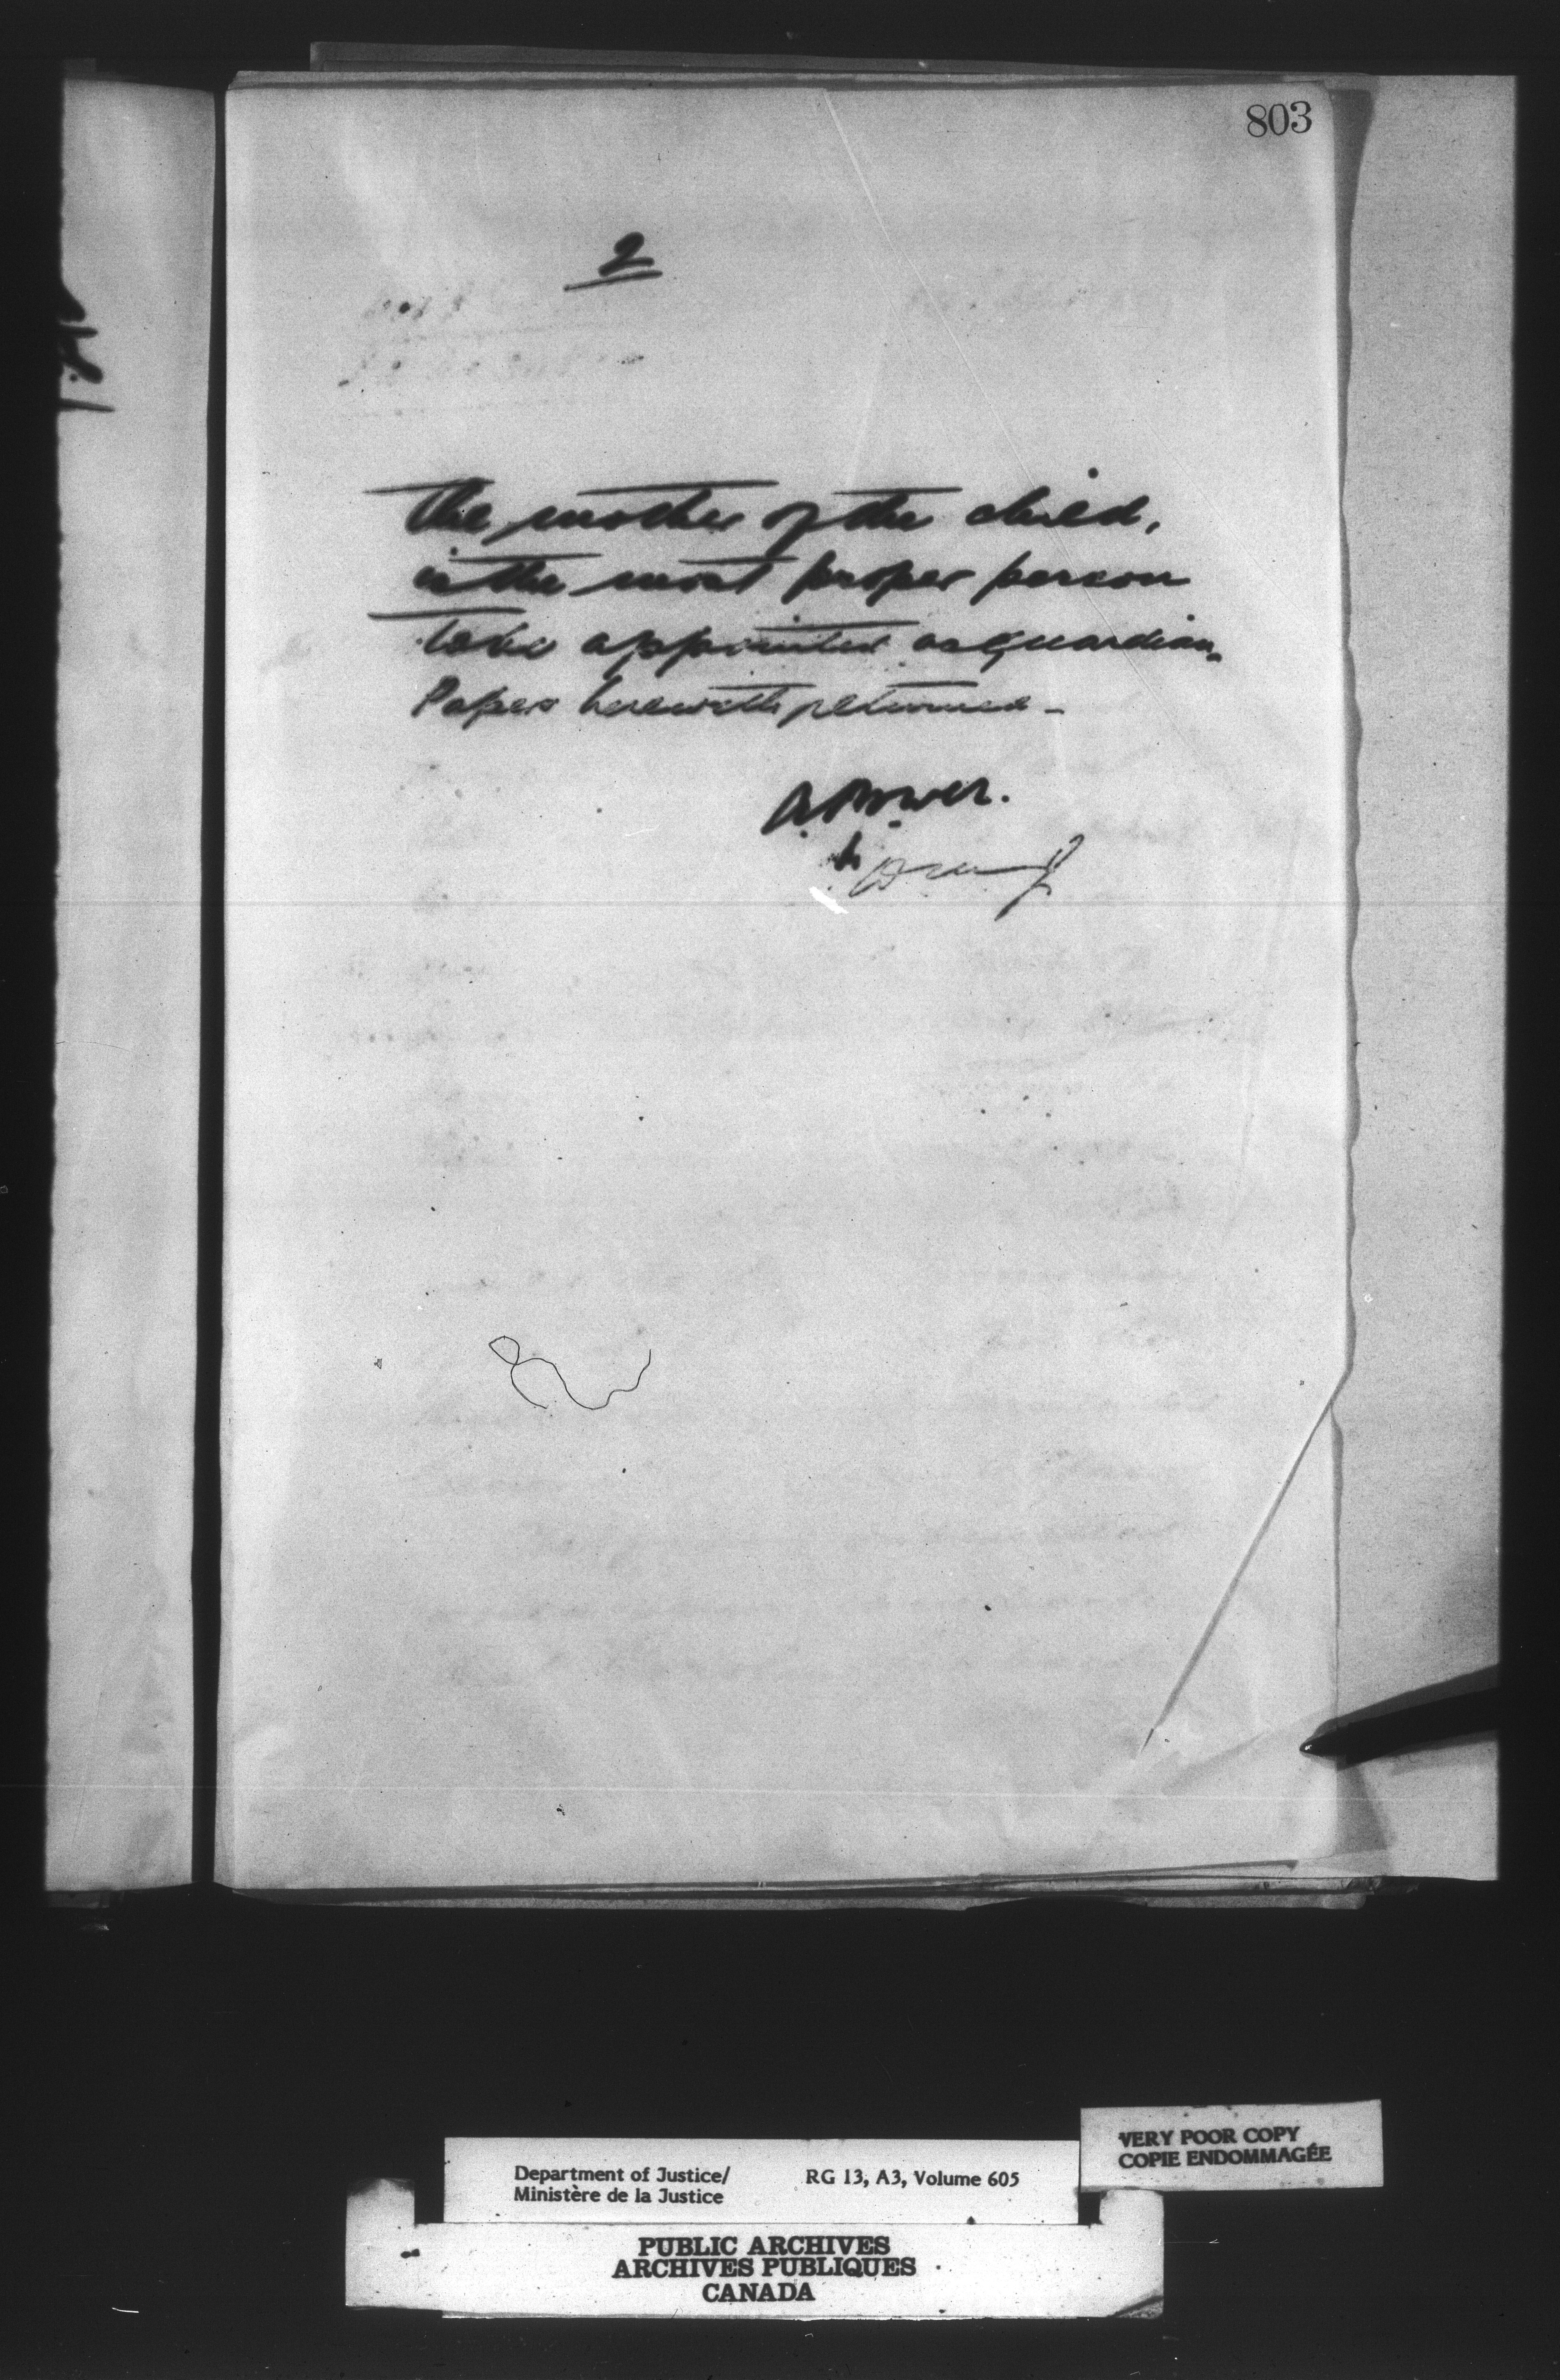 803
2
The mother of the child,
is the most proper person
to be appointed as guardian.
Papers herewith returned -
A Power.
Department of Justice/ RG 13, A3, Volume 605
Ministère de la Justice
VERY POOR COPY
COPIE ENDOMMAGÉE
PUBLIC ARCHIVES
ARCHIVES PUBLIQUES
CANADA